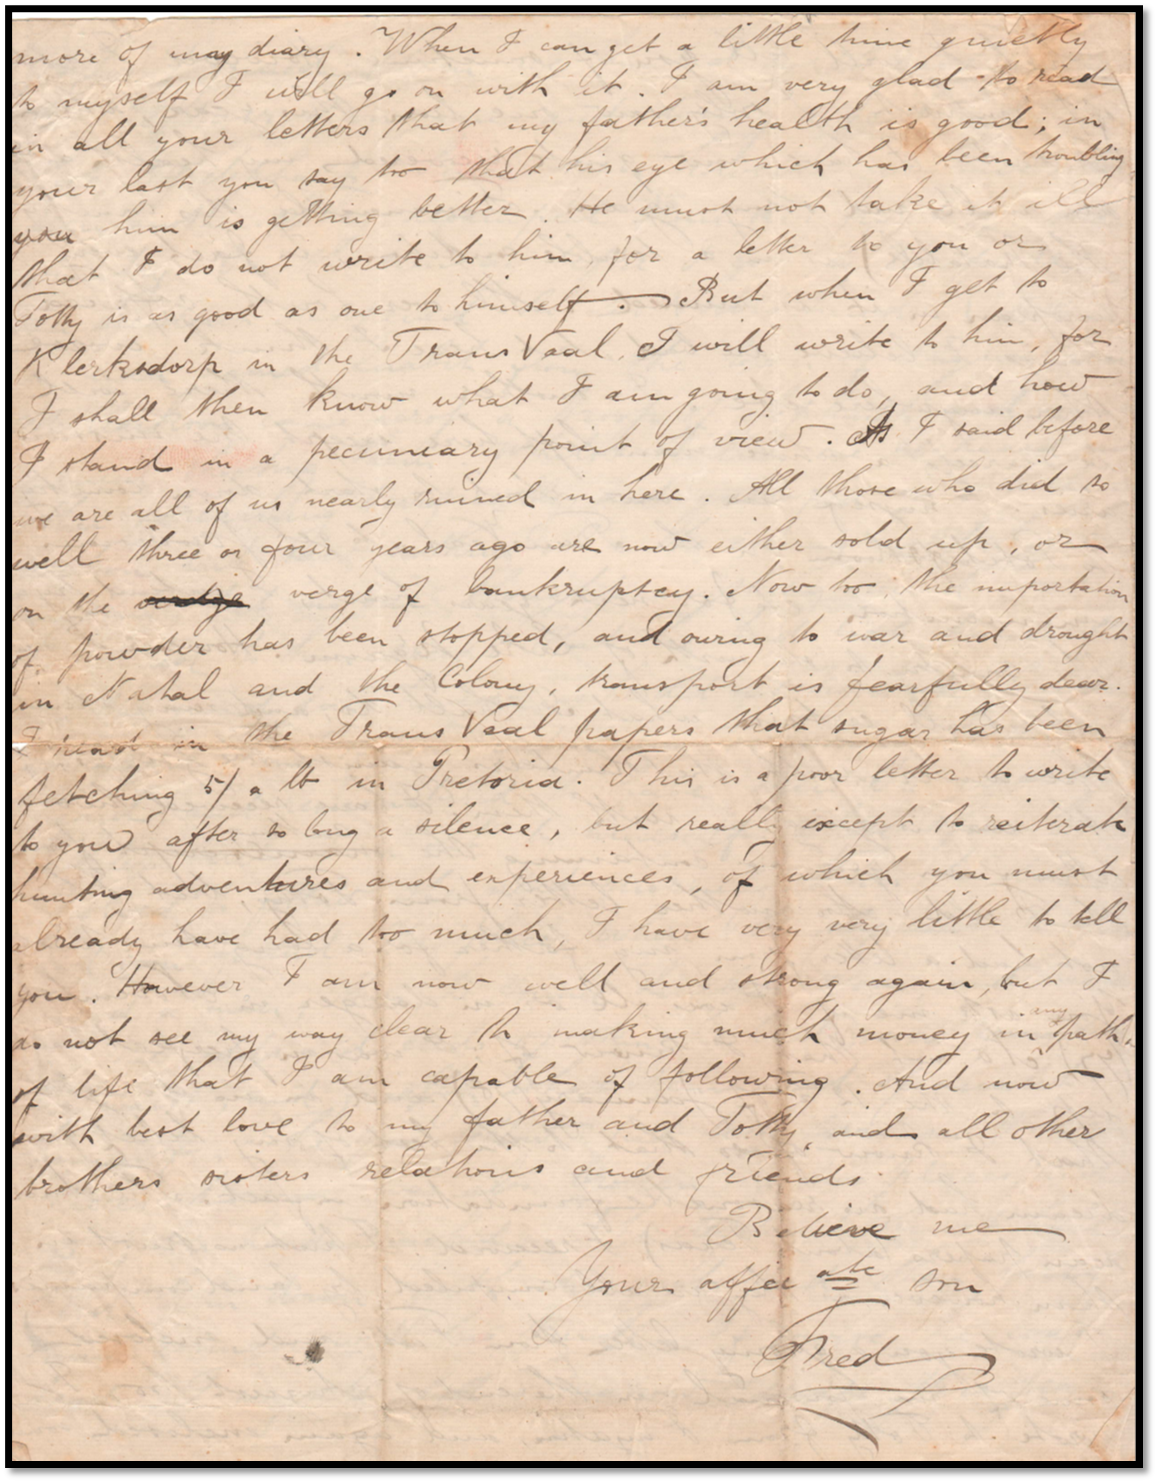 more of my diary. When I can get a little time quietly
to myself I will go on with it. I am very glad to read
in all your letters that my father's health is good; in
your last you say too that his eye which has been troubling
him is getting better. He must not take it ill
that I do not write to him, for a letter to you or
Totty is as good as one to himself. But when I get to
Klerksdorp in the TransVaal, I will write to him, for
I shall then know what I am going to do, and how
I stand in a pecuniary point of view. As I said before
we are all of us nearly ruined in here. All those who did so
well three or four years ago are now either sold up, or
on the verge of bankruptcy. Now too, the importation
of powder has been stopped, and owing to war and drought
in Natal and the Colony, transport is fearfully dear.
I read in the TransVaal papers that sugar has been
fetching 5/ a lb in Pretoria. This is a poor letter to write
to you after so long a silence, but really except to reiterate
hunting adventures and experiences, of which you must
already have had too much, I have very very little to tell
you. However I am now well and strong again, but I
do not see my way clear to making much money in any path
of life that I am capable of following. And now
with best love to my father and Totty, and all other
brothers sisters relations and friends.
Believe me
Your affecate son
Fred